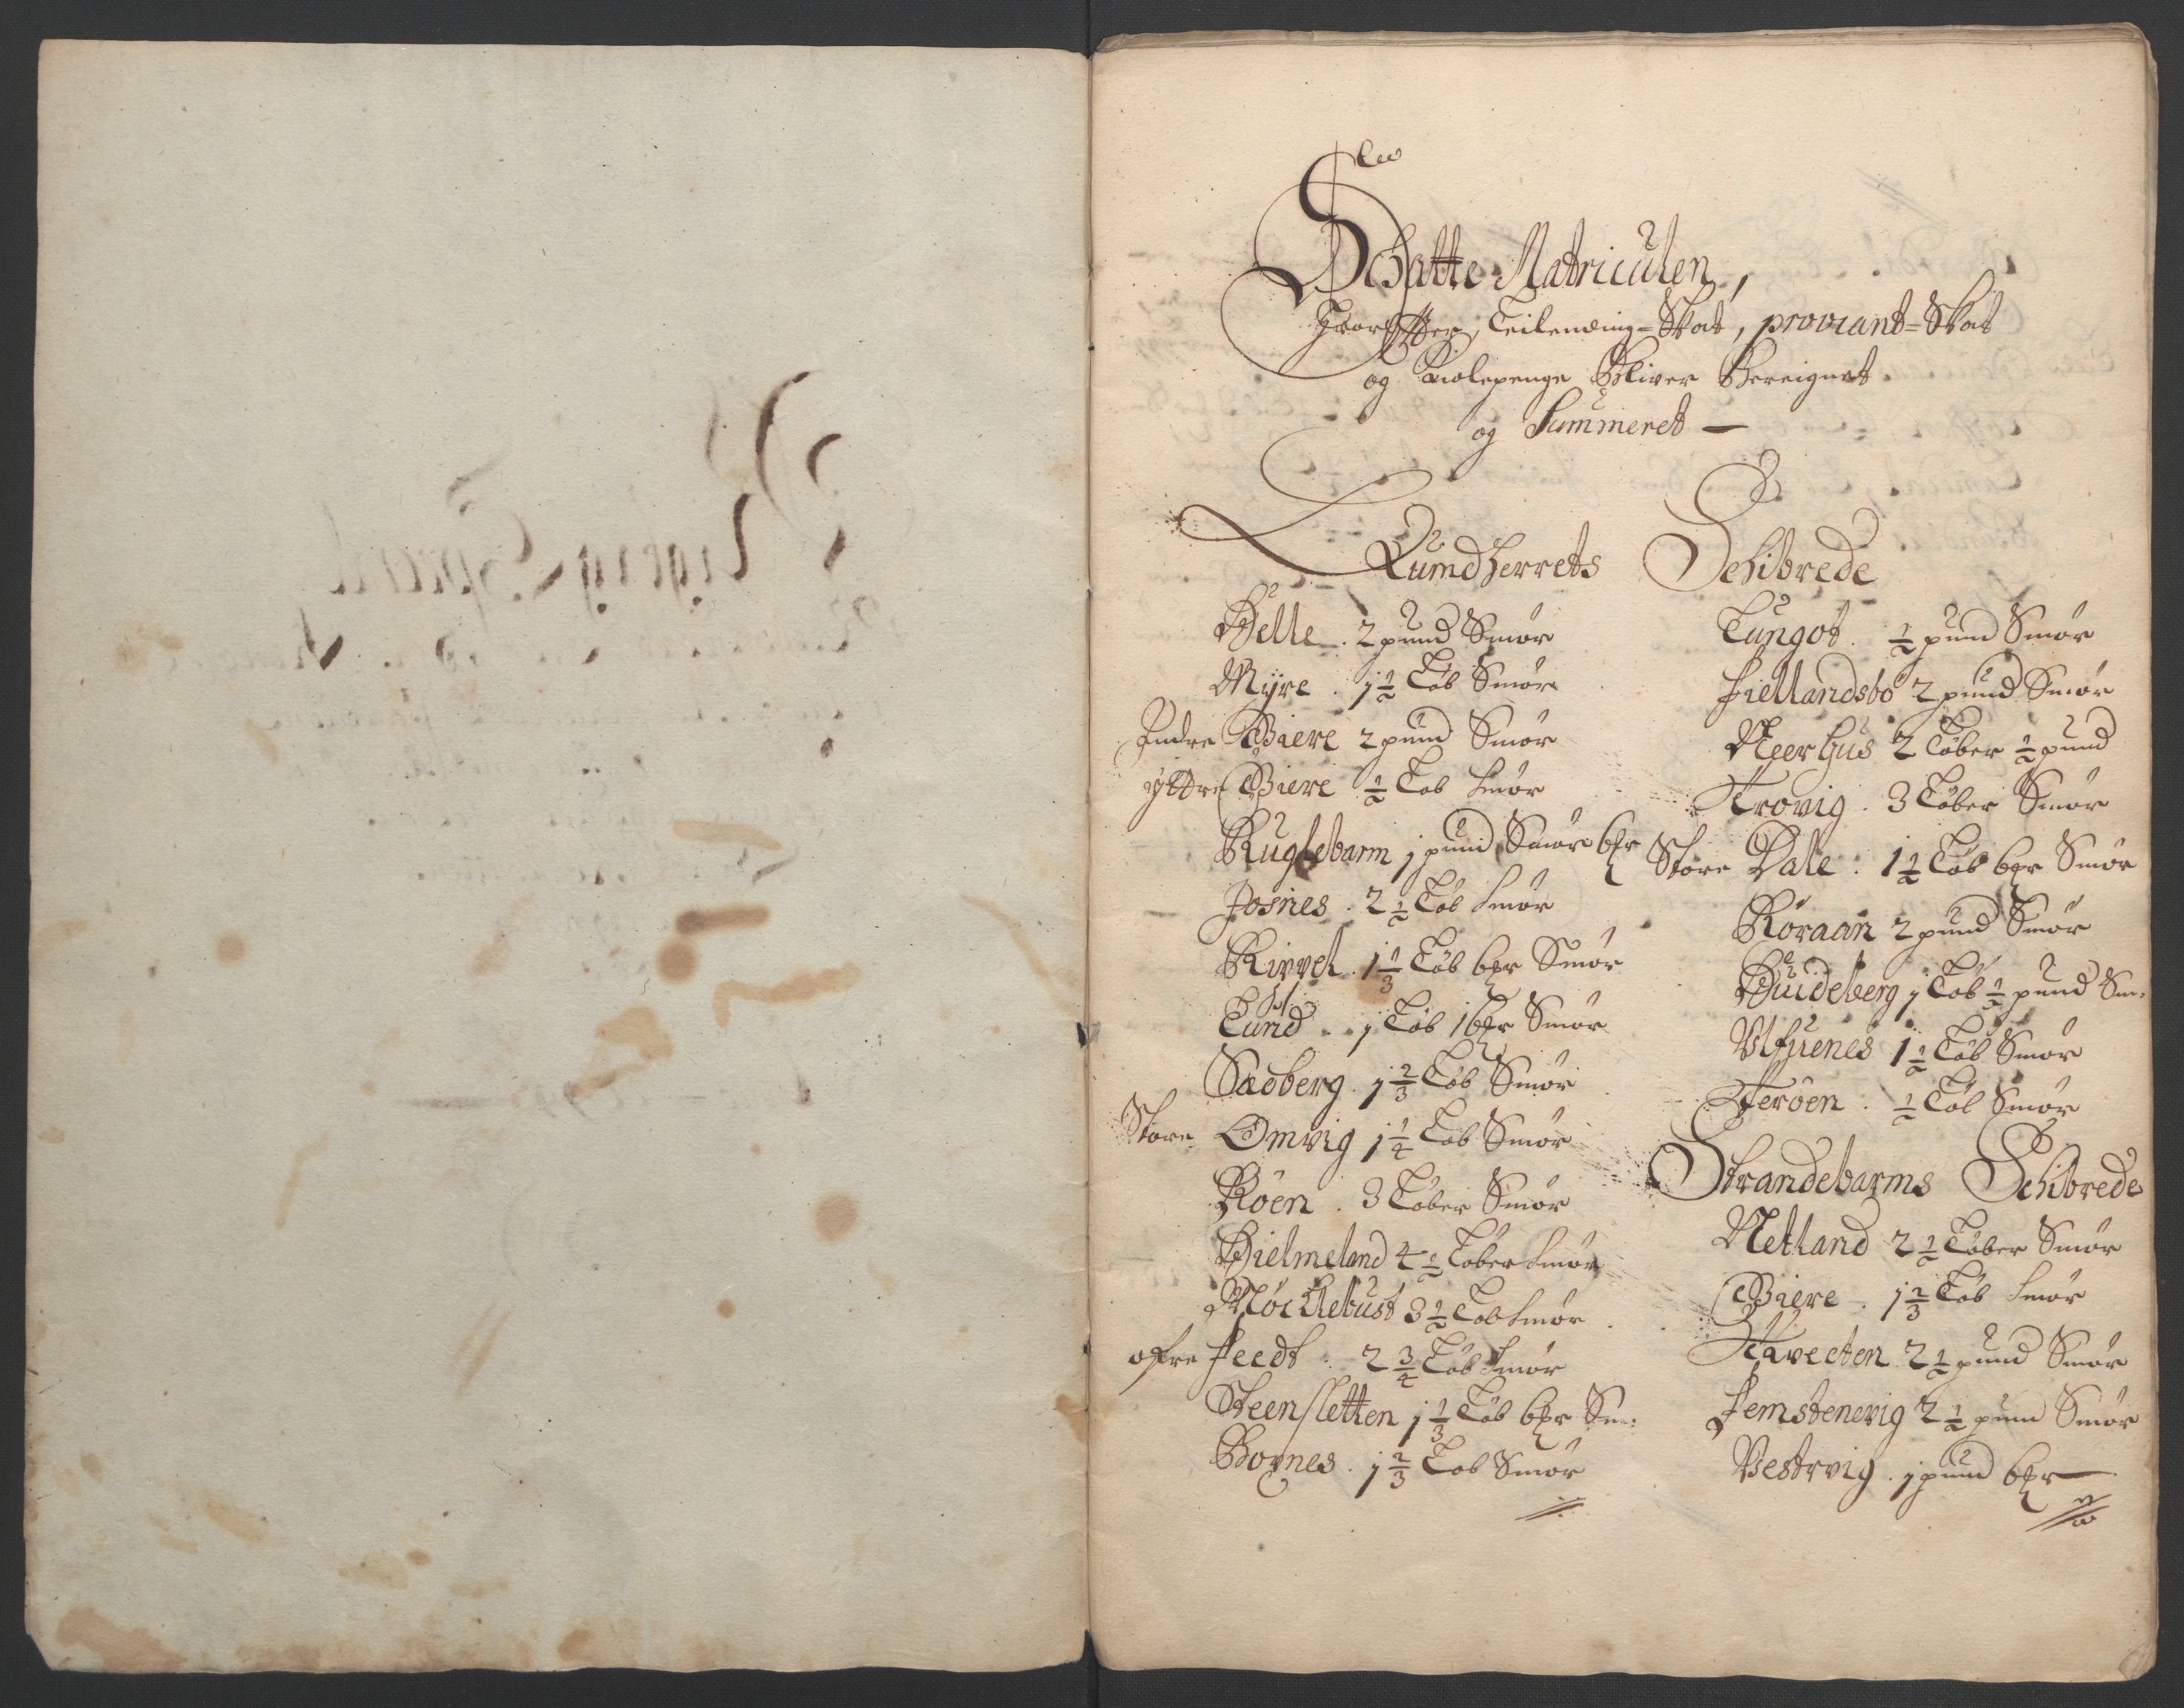 En
Schatte Matriculen,
Hvorefter, Leilending-Skat, proviant-Skat
og Kiolepenge Bliver Bereignet.
og Summeret —
Qumdherrets Schibrede
Helle. 2 pund Smør
Myre. j 1/2 Løb Smør
Indre Giere 2 pund Smør
yttre Giere 1/2 Løb Smør
Kuglebarm j pund Smør 6 pr
Josnes. 2 1/2 Løb Smør
Kivvel. 1 1/3 Løb 6 pr Smør
Lund. j Løb 1 6 pr Smør
Sædberg. j 2/3 Løb Smør
Store Omvig j 1/4 Løb Smør
Röen. 3 Løber Smør
Hielmeland 4 1/2 Løber Smør
Möchlebust 3 1/2 Løb Smør
ofre Feedt. 2 3/4 Løb Smør
Steensletten j 1/3 Løb 6 pr Sm:
Bognes. j 2/3 Løb Smør
Tungot. 1/2 pund Smør
Fiellandsbo 2 pund Smør
Neerhus 2 Løber 1/2 pund
Trovig. 3 Løber Smør
Store Dale. 1 1/2 Løb 6 pr Smør
Röraan 2 pund Smør
Guideberg j Løb 1/2 pund Sm:
Ulfuenes 1 1/2 Løb Smør
Teröen. 1/2 Løb Smør
Strandebarms Schibrede
Netland 2 1/2 Løber Smør
Giere. j 2/3 Løb Smør
Tveeten 2 1/2 pund Smør
Femstenevig 2 1/2 pund Smør
Vestrvig. j pund 6 pr —